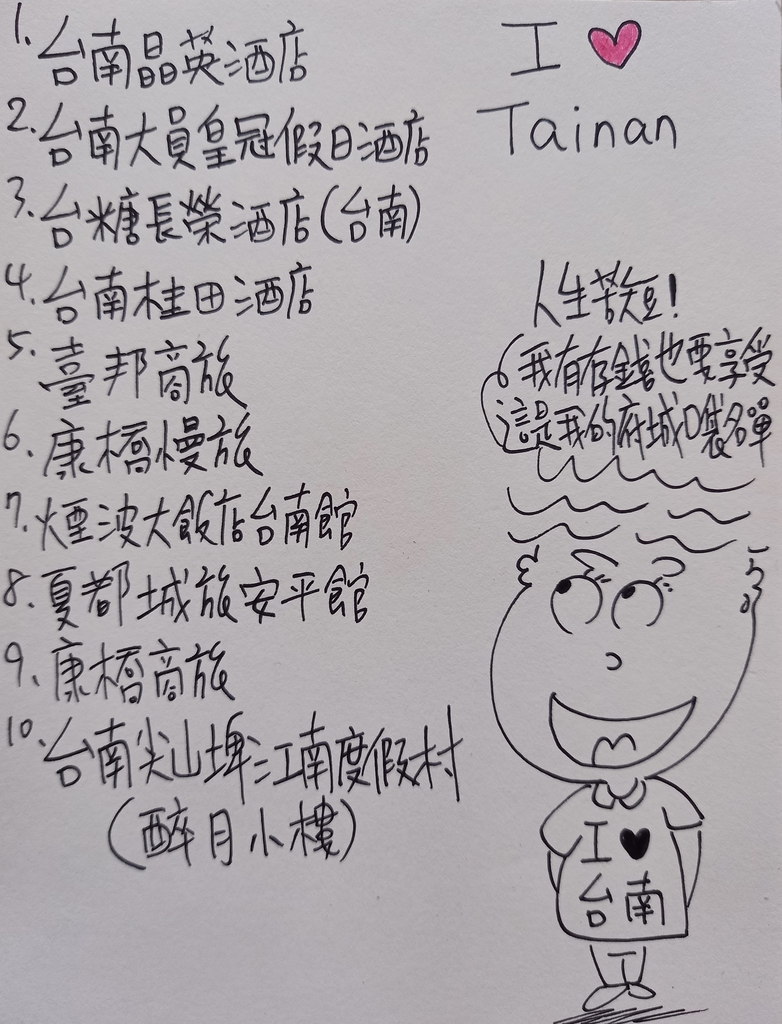 1. 台南晶英酒店
2. 台南大員皇冠假日酒店
3. 台糖長榮酒店(台南)
4. 台南桂田酒店
5. 臺邦商旅
6. 康橋慢旅
7. 煙波大飯店台南館
8. 夏都城旅安平館
9. 康橋商旅
10. 台南尖山埤江南度假村
(醉月小樓)
I ♥
Tainan
人生苦短!
我有存錢也要享受
這是我的府城口袋名單
I ♥
台南